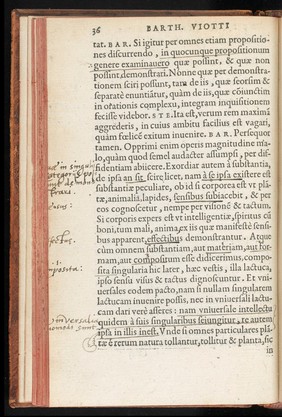 36 BARTH. VIOTTI
tat. BAR. Si igitur per omnes etiam propositio-
nes discurrendo, in quocunque propositionum
genere examinauero quæ possint, & quæ non
possint, demonstrari. Nonne quæ per demonstra-
tionem sciri possunt, tam de iis, quæ seorsim &
separatè enuntiātur, quàm de iis, quæ cōiunctim
in orationis complexu, integram inquisitionem
fecisse videbor. STE. Ita est, verum rem maximā
aggrederis, in cuius ambitu facilius est vagari,
quàm fœlicē exitum inuenire. BAR. Persequor
tamen. Opprimi enim operis magnitudine ma-
lo, quàm quod semel audacter assumpsi, per dif-
fidentiam abiicere. Exordiar autem à substantia,
de ipsa an sit, scire licet, nam à se ipsa existere est
substantiæ peculiare, ob id si corporea est vt plā-
tæ, animalia, lapides, sensibus subiacebit, & per
eos cognoscetur, nempe per visionē & tactum.
Si corporis expers est vt intelligentiæ, spiritus cū
boni, tum mali, anima, ex iis quæ manifestè sensi-
bus apparent, effectibus demonstrantur. Atque
cùm omnem substantiam, aut materiam, aut for-
mam, aut compositum esse didicerimus, compo-
sita singularia hic later, hæc vestis, illa lactuca,
ipso sensu visis & tactus dignoscuntur. Et vni-
uersales eodem pacto, nam si nullam singularem
lactucam inuenire possis, nec in vniuersali lactu-
cam dari verè asseres: nam vniuersale intellectu
quidem à suis singularibus seiungitur, re autem
ipsa in illis inest. Vnde si omnes particulares plā-
tæ è rerum natura tollantur, tollitur & planta, sic
in